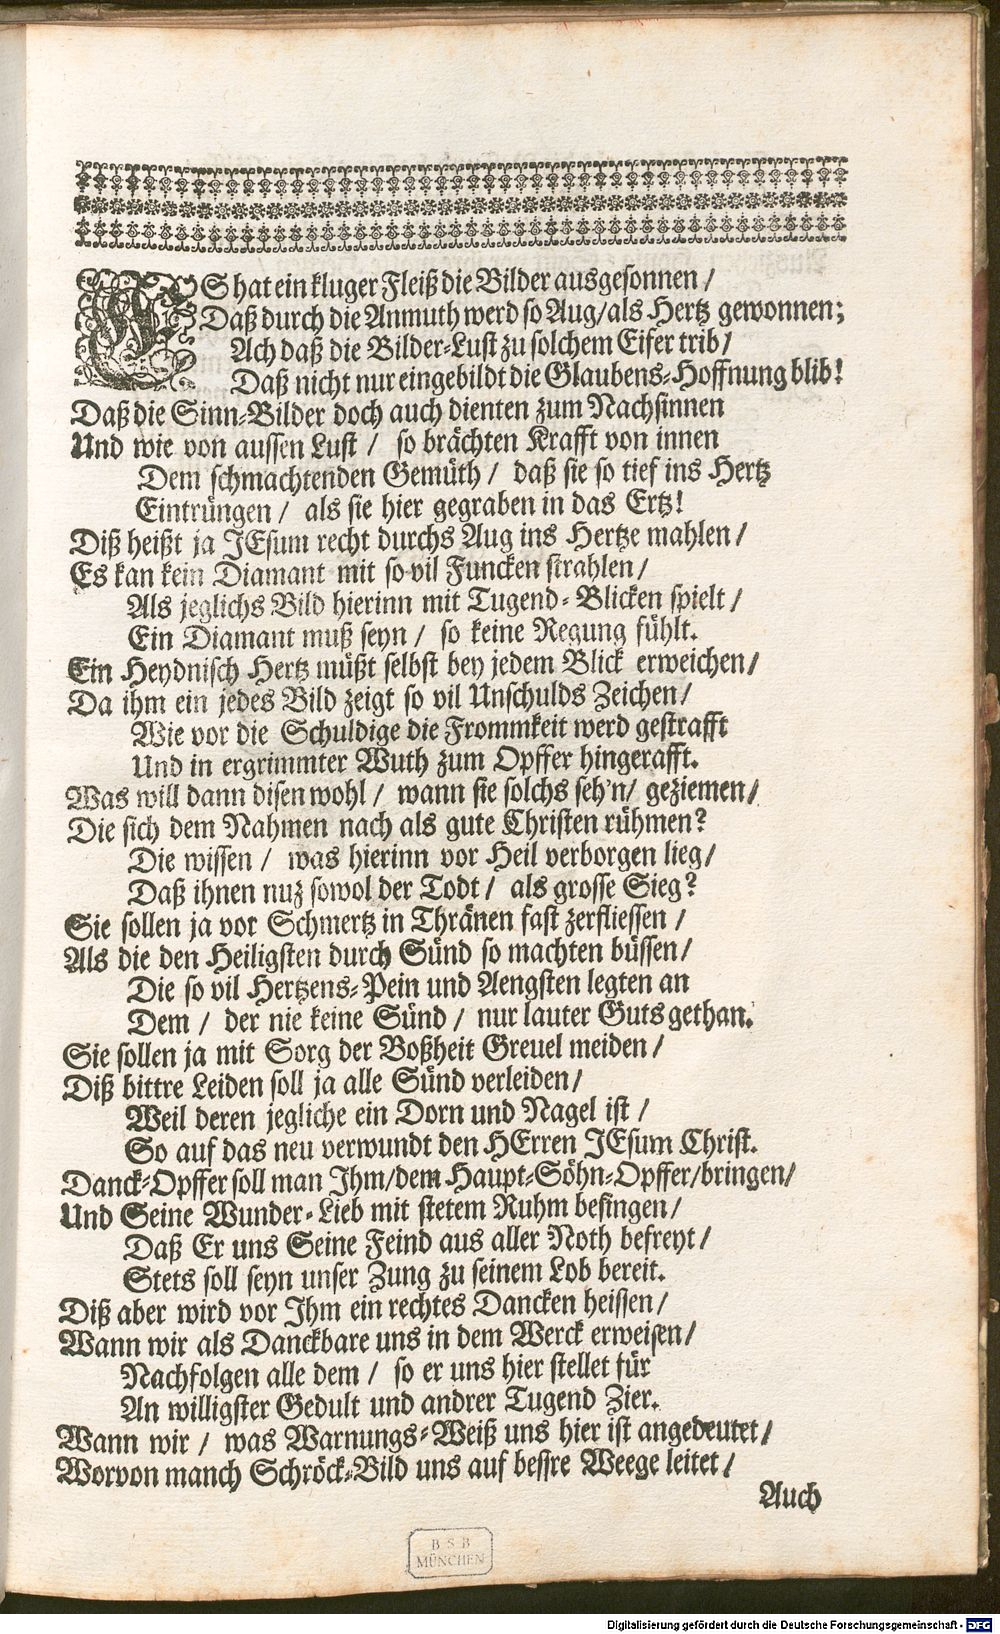 ES hat ein kluger Fleiß die Bilder ausgesonnen /
Daß durch die Anmuth werd so Aug/als Hertz gewonnen;
Ach daß die Bilder-Lust zu solchem Eifer trib/
Daß nicht nur eingebildt die Glaubens-Hoffnung blib!
Daß die Sinn-Bilder doch auch dienten zum Nachsinnen
Und wie von aussen Lust / so brächten Krafft von innen
Dem schmachtenden Gemüth / daß sie so tief ins Hertz
Eintrüngen / als sie hier gegraben in das Ertz!
Diß heißt ja JEsum recht durchs Aug ins Hertze mahlen /
Es kan kein Diamant mit so vil Funcken strahlen /
Als jeglichs Bild hierinn mit Tugend-Blicken spielt /
Ein Diamant muß seyn / so keine Regung fühlt.
Ein Heydnisch Hertz müßt selbst bey jedem Blick erweichen /
Da ihm ein jedes Bild zeigt so vil Unschulds Zeichen /
Wie vor die Schuldige die Frommkeit werd gestrafft
Und in ergrimmter Wuth zum Opffer hingerafft.
Was will dann disen wohl / wann sie solchs seh'n/ geziemen/
Die sich dem Nahmen nach als gute Christen rühmen?
Die wissen / was hierinn vor Heil verborgen lieg/
Daß ihnen nuz sowol der Todt / als grosse Sieg?
Sie sollen ja vor Schmertz in Thränen fast zerfliessen /
Als die den Heiligsten durch Sünd so machten büssen/
Die so vil Hertzens-Pein und Aengsten legten an
Dem / der nie keine Sünd / nur lauter Guts gethan.
Sie sollen ja mit Sorg der Boßheit Greuel meiden /
Diß bittre Leiden soll ja alle Sünd verleiden/
Weil deren jegliche ein Dorn und Nagel ist /
So auf das neu verwundt den HErren JEsum Christ.
Danck-Opffer soll man Jhm/dem Haupt-Söhn-Opffer/bringen/
Und Seine Wunder-Lieb mit stetem Ruhm besingen/
Daß Er uns Seine Feind aus aller Noth befreyt /
Stets soll seyn unser Zung zu seinem Lob bereit.
Diß aber wird vor Jhm ein rechtes Dancken heissen /
Wann wir als Danckbare uns in dem Werck erweisen/
Nachfolgen alle dem / so er uns hier stellet für
An willigster Gedult und andrer Tugend Zier.
Wann wir / was Warnungs-Weiß uns hier ist angedeutet /
Worvon manch Schröck-Bild uns auf bessre Weege leitet /
Auch
B S B
MÜNCHEN
Digitalisierung gefördert durch die Deutsche Forschungsgemeinschaft - DFG